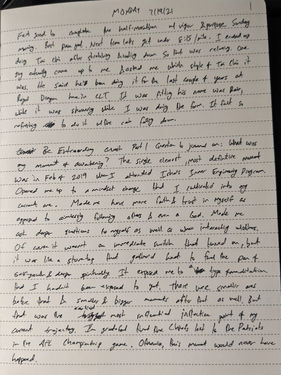 MONDAY 7/19/21
Felt good to complete the half-marathon w/ vigor & purpose Sunday
morning. Best pace yet. Next time let's get under 8:15/mile. I ended up
doing Tai Chi after stretching heading down So that was relieving. One
guy actually came up to me & asked me which style of Tai Chi it
was. He said he's been doing it for the last couple of years at
Royal Dragon here in CLT. It was fitting his name was
while it was storming while I was doing the form. It felt so
refreshing to do it w/ the rain falling down.
Be Extraordinary Part 1 Question to journal on: What was
my moment of awakening? The single clearest, most definitive moment
was in Feb of 2019 when I attended Isha's Inner Engineering Program.
Opened me up to a mindset change that I cultivated into my
current one. Made me have more faith & trust in myself as
opposed to aimlessly following others & even a God. Made me
ask deeper questions to myself as well as when interacting w/ others.
Of course it wasn't an immediate switch that turned on, but
it was like a storm that gathered speed to find the path of
self-growth & deeper spirituality. It exposed me to a type of meditation
that I hadn't been exposed to yet. There were smaller ones
before that & smaller & bigger moments after that as well. But
that was the earliest most influential inflection point of my
current trajectory. I'm grateful that the Chiefs lost to the Patriots
in the AFC Championship game. Otherwise, this moment would never have
happened.